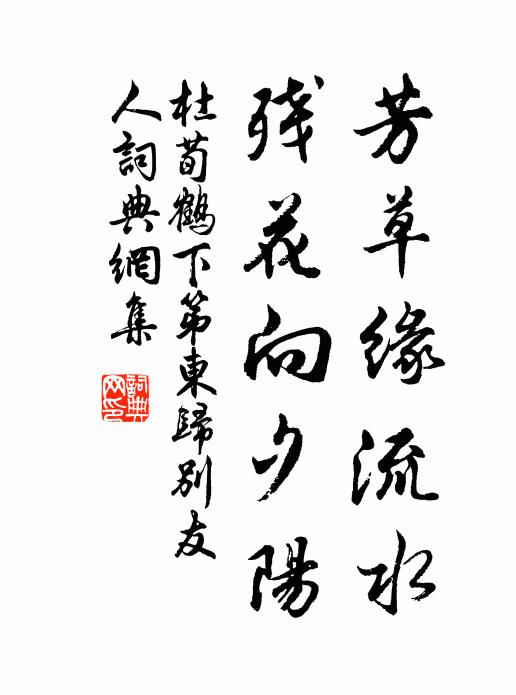 芳草緣流水
残花向夕陽
杜荀鶴下第東歸別友
人詞典網集
詞典网印